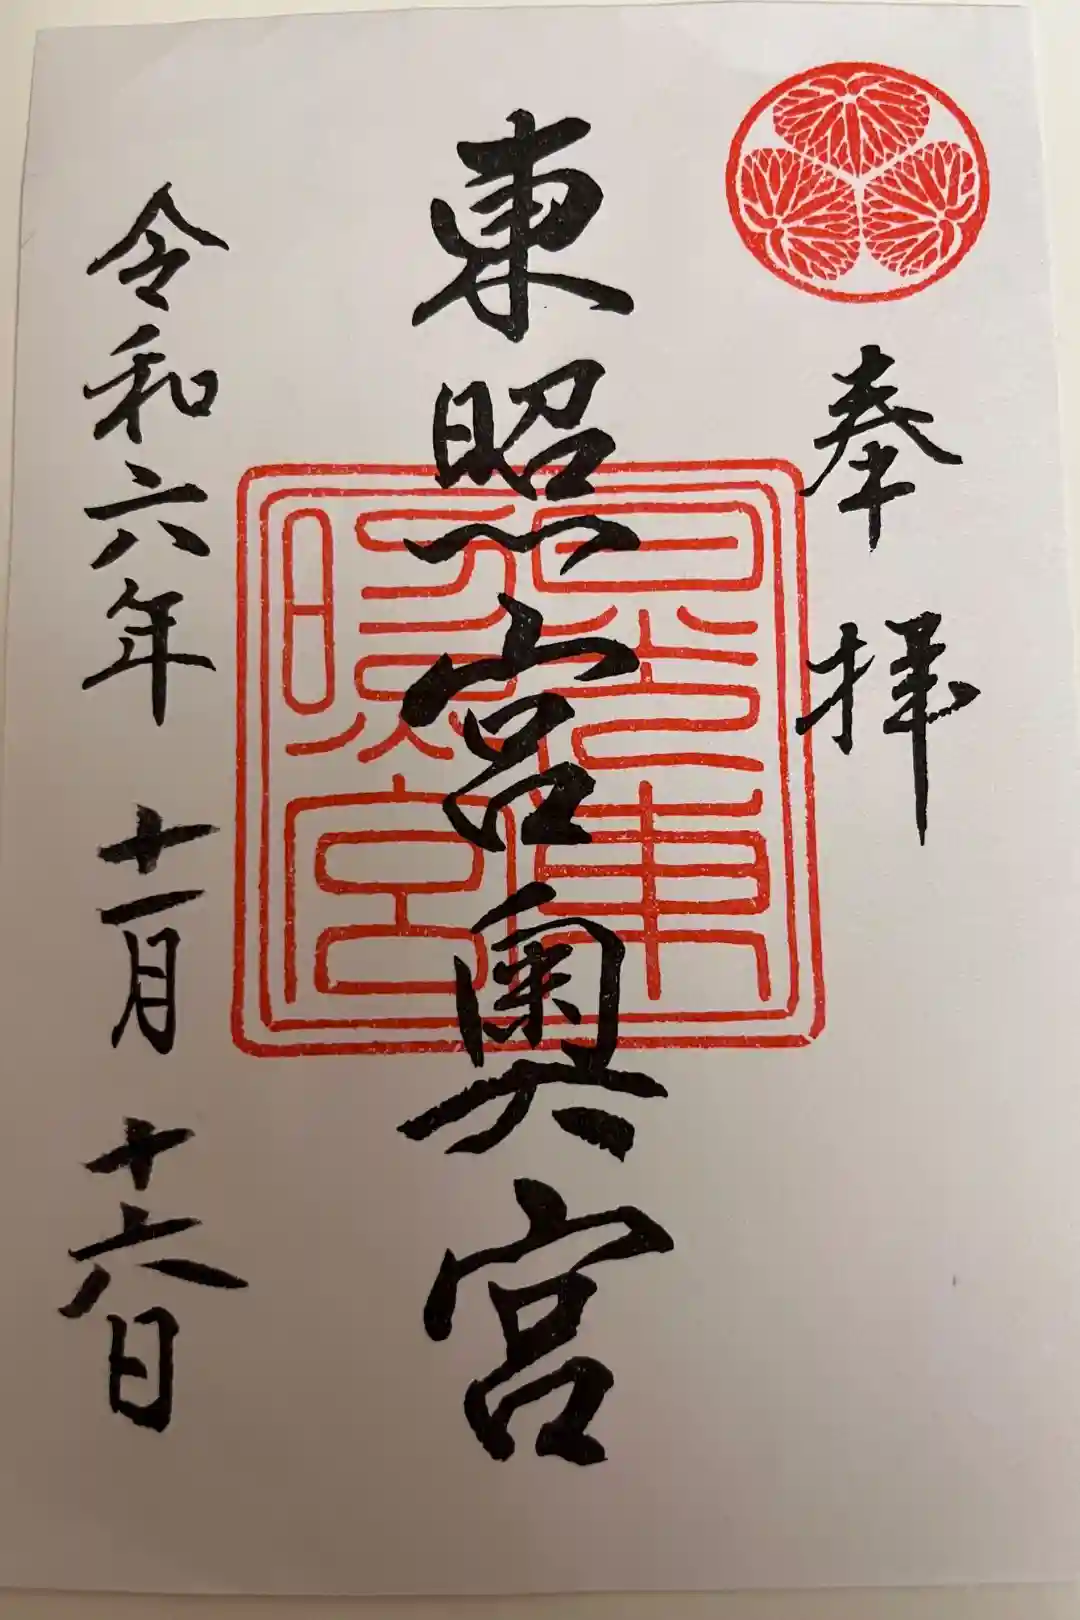 奉拝
東照宮奥宮
日光東照宮
令和六年 十一月 十六日